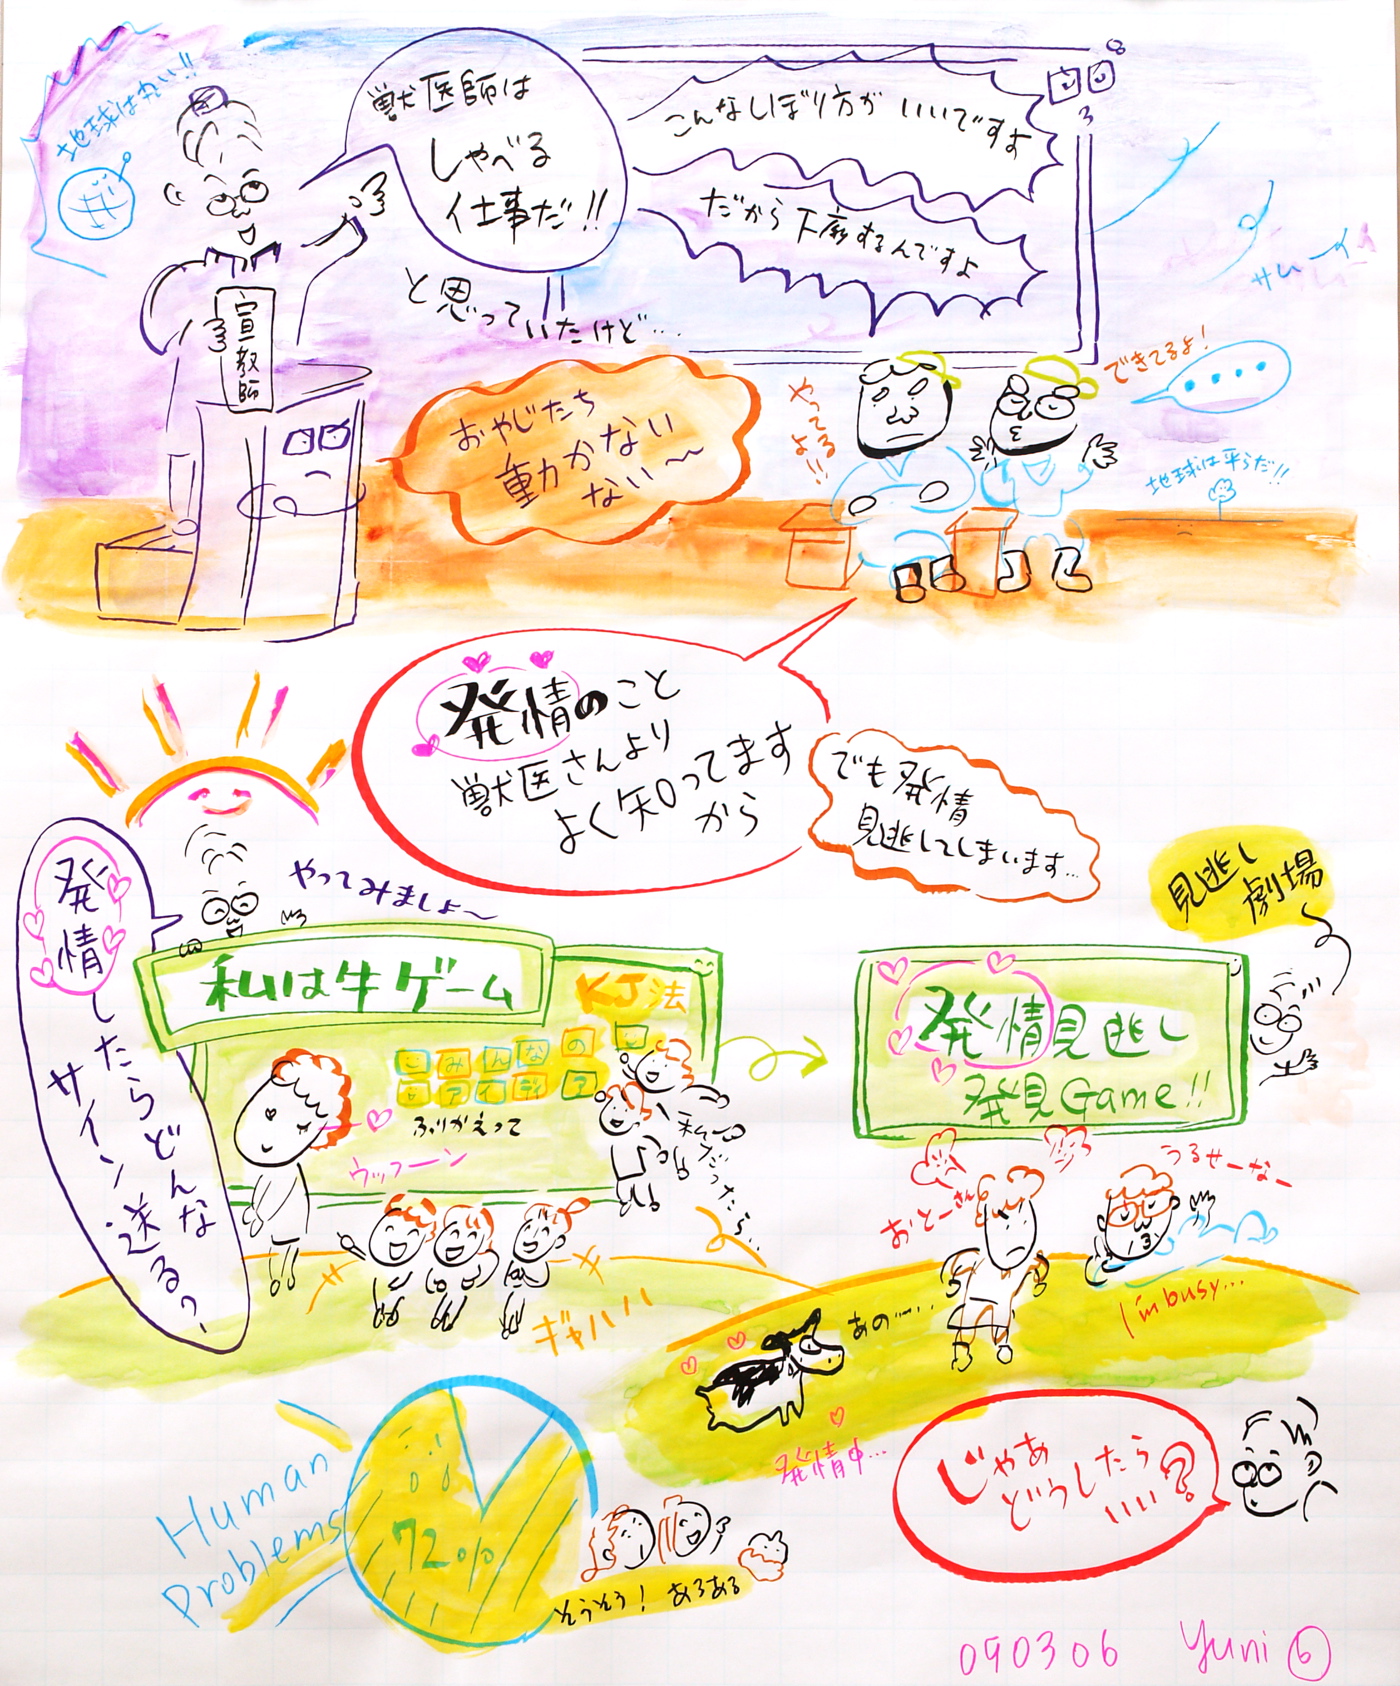 地球は丸い!!
獣医師は
しゃべる
仕事だ!!
こんなしぼり方が いいですよ
だから下痢するんですよ
宣教師
と思っていたけど…
サムーイ
おやじたち
動かない
ない〜
やってるよ!!
できてるよ!
・・・・
地球は平らだ!!
発情のこと
獣医さんより
よく知ってます
から
でも発情
見逃してしまいます…
見逃し
劇場
発情したらどんな
サイン送る?
やってみましょ〜
私は牛ゲーム
KJ法
みんなの
アイディア
ふりかえって
ウッフーン
私だったら…
ギャハハハ
発情見逃し
発見Game!!
おとーさん
うるせーなー
I'm busy...
あの……
発情中…
Human
Problems
72%
そうそう! あるある
じゃあ
どうしたら
いい?
090306 Yuni ⑥